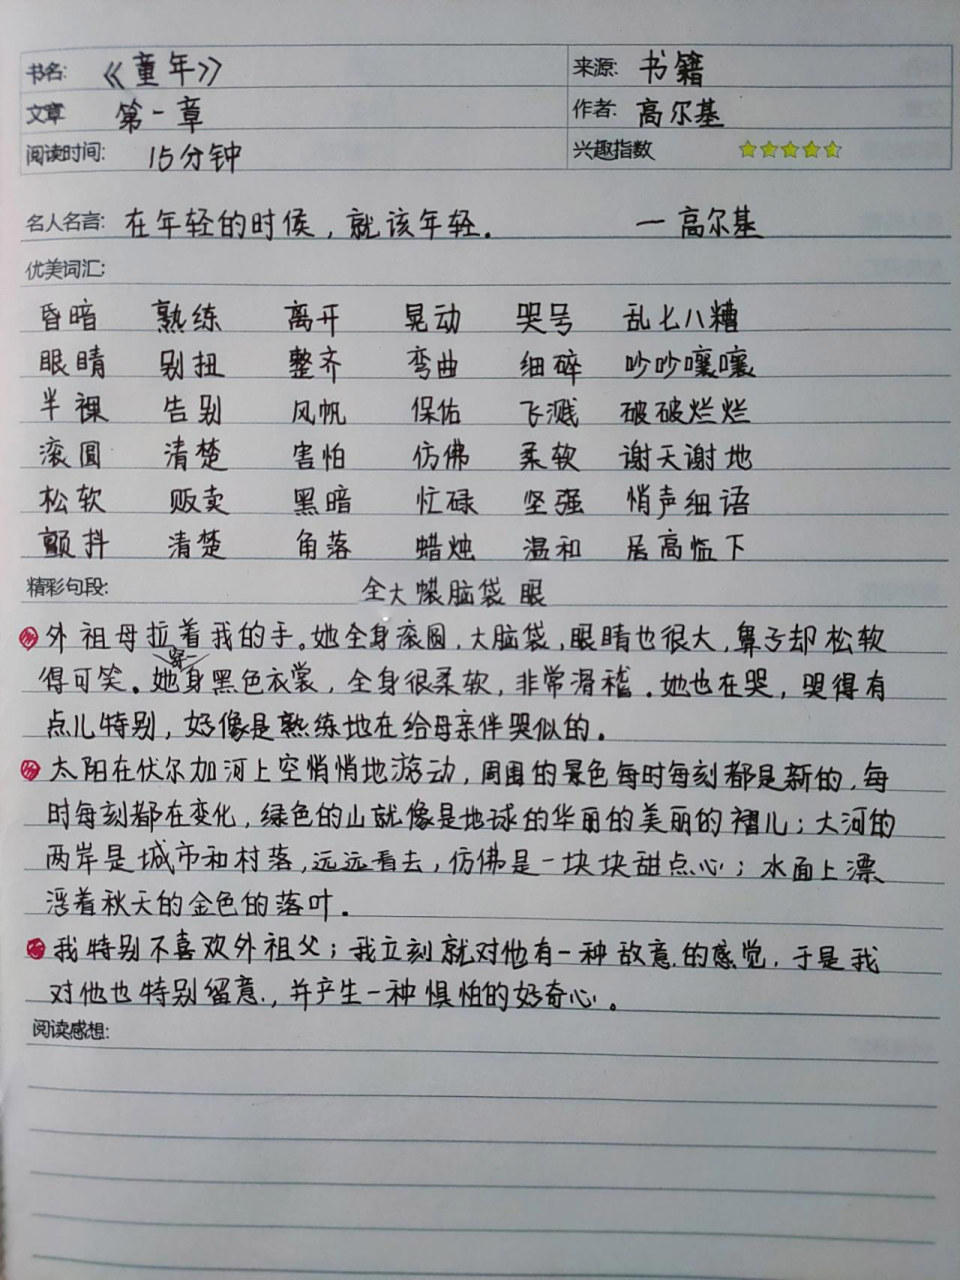 书名: 《童年》 来源: 书籍
文章 第一章 作者: 高尔基
阅读时间: 15分钟 兴趣指数
名人名言: 在年轻的时侯，就该年轻. — 高尔基
优美词汇:
昏暗 熟练 离开 晃动 哭号 乱七八糟
眼睛 别扭 整齐 弯曲 细碎 吵吵嚷嚷
半裸 告别 风帆 保佑 飞溅 破破烂烂
滚圆 清楚 害怕 仿佛 柔软 谢天谢地
松软 贩卖 黑暗 忙碌 坚强 悄声细语
颤抖 清楚 角落 蜡烛 温和 居高临下
精彩句段: 全大 脑袋 眼
外祖母拉着我的手。她全身滚圆，大脑袋，眼睛也很大，鼻子却松软
穿一
得可笑。她身黑色衣裳，全身很柔软，非常滑稽。她也在哭，哭得有
点儿特别，好像是熟练地在给母亲伴哭似的。
太阳在伏尔加河上空悄悄地游动，周围的景色每时每刻都是新的，每
时每刻都在变化，绿色的山就像是地球的华丽的美丽的褶儿；大河的
两岸是城市和村落，远远看去，仿佛是一块块甜点心；水面上漂
浮着秋天的金色的落叶。
我特别不喜欢外祖父；我立刻就对他有一种敌意的感觉，于是我
对他也特别留意，并产生一种惧怕的好奇心。
阅读感想: